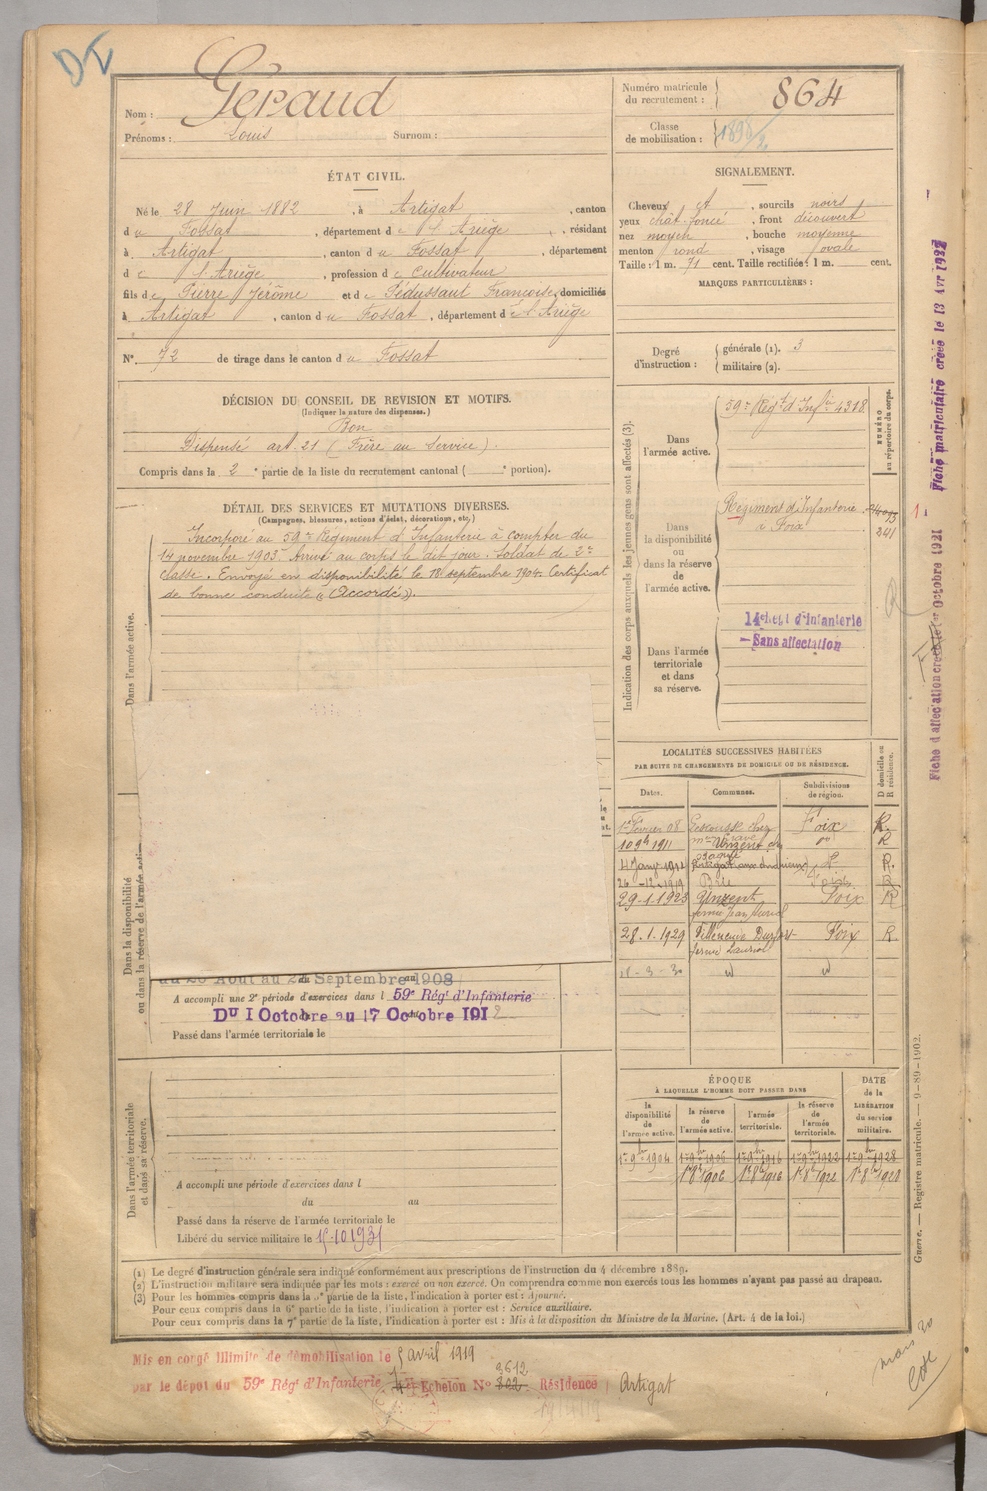 Nom : Géraud
Prénoms : Louis Surnom :
ÉTAT CIVIL.
Né le 28 Juin 1882, à Artigat, canton
du Fossat, département de l'Ariège, résidant
à Artigat, canton du Fossat, département
de l'Ariège, profession de Cultivateur
fils de Pierre Jérôme et de Sédussaut Françoise, domiciliés
à Artigat, canton du Fossat, département de l'Ariège
N° 72 de tirage dans le canton du Fossat
DÉCISION DU CONSEIL DE REVISION ET MOTIFS.
(Indiquer la nature des dispenses.)
Bon
Dispensé art. 21 (Frère au Service).
Compris dans la 2e partie de la liste du recrutement cantonal ( e portion).
DÉTAIL DES SERVICES ET MUTATIONS DIVERSES.
(Campagnes, blessures, actions d'éclat, décorations, etc.)
Dans l'armée active.
Incorporé au 59me Régiment d'Infanterie à compter du
14 novembre 1903. Arrivé au corps le dit jour. Soldat de 2e
classe. Envoyé en disponibilité le 18 septembre 1904. Certificat
de bonne conduite « Accordé ».
Dans la disponibilité
ou dans la réserve de l'armée active
Août au Septembre 1908
A accompli une 2e période d'exercices dans l 59e Régt d'Infanterie
Du 1 Octobre au 17 Octobre 1912
Passé dans l'armée territoriale le
Dans l'armée territoriale
et dans sa réserve.
A accompli une période d'exercices dans l
du au
Passé dans la réserve de l'armée territoriale le
Libéré du service militaire le 15.10 1931
Numéro matricule
du recrutement : 864
Classe
de mobilisation :
SIGNALEMENT.
Cheveux et, sourcils noirs
yeux chât. foncé, front découvert
nez moyen, bouche moyenne
menton rond, visage ovale
Taille : 1 m. 71 cent. Taille rectifiée : 1 m. cent.
MARQUES PARTICULIÈRES :
Degré
d'instruction :
générale (1). 3
militaire (2).
Indication des corps auxquels les jeunes gens sont affectés (3).
NUMÉRO
au répertoire du corps.
Dans
l'armée active.
59e Régt d'Infie 4318
Dans
la disponibilité
ou
dans la réserve
de
l'armée active.
Régiment d'Infanterie
à Foix
241
Dans l'armée
territoriale
et dans
sa réserve.
d'infanterie
Sans affectation
LOCALITÉS SUCCESSIVES HABITÉES
PAR SUITE DE CHANGEMENTS DE DOMICILE OU DE RÉSIDENCE.
Dates. Communes. Subdivisions
de région.
D domicile ou
R résidence.
1er Février 08 Foix R.
10 9b 1911 R
4 Janv. 1914 R.
26-12-1919 Brie R
29-1-1923 Unzent Foix R
28.1.1929 Villeneuve Foix R
28-3-30 id id
ÉPOQUE
À LAQUELLE L'HOMME DOIT PASSER DANS
DATE
de la
LIBÉRATION
du service
militaire.
la
disponibilité
de
l'armée active.
la réserve
de
l'armée active.
l'armée
territoriale.
la réserve
de
l'armée
territoriale.
1er 9b 1904 1er 9b 1906 1er 9b 1916 1er 9b 1922 1er 9b 1928
1er 8b 1906 1er 8b 1916 1er 8b 1922 1er 8b 1928
(1) Le degré d'instruction générale sera indiqué conformément aux prescriptions de l'instruction du 4 décembre 1889.
(2) L'instruction militaire sera indiquée par les mots : exercé ou non exercé. On comprendra comme non exercés tous les hommes n'ayant pas passé au drapeau.
(3) Pour les hommes compris dans la 5e partie de la liste, l'indication à porter est : Ajourné.
Pour ceux compris dans la 6e partie de la liste, l'indication à porter est : Service auxiliaire.
Pour ceux compris dans la 7e partie de la liste, l'indication à porter est : Mis à la disposition du Ministre de la Marine. (Art. 4 de la loi.)
Mis en congé illimité de démobilisation le 5 avril 1919
par le dépôt du 59e Régt d'Infanterie Echelon N° 3612 Résidence Artigat
Fiche matriculaire créée le 13 Avr 1932
Fiche d'affectation créée le 1er Octobre 1921
Guerre. — Registre matricule. — 9-89-1902.